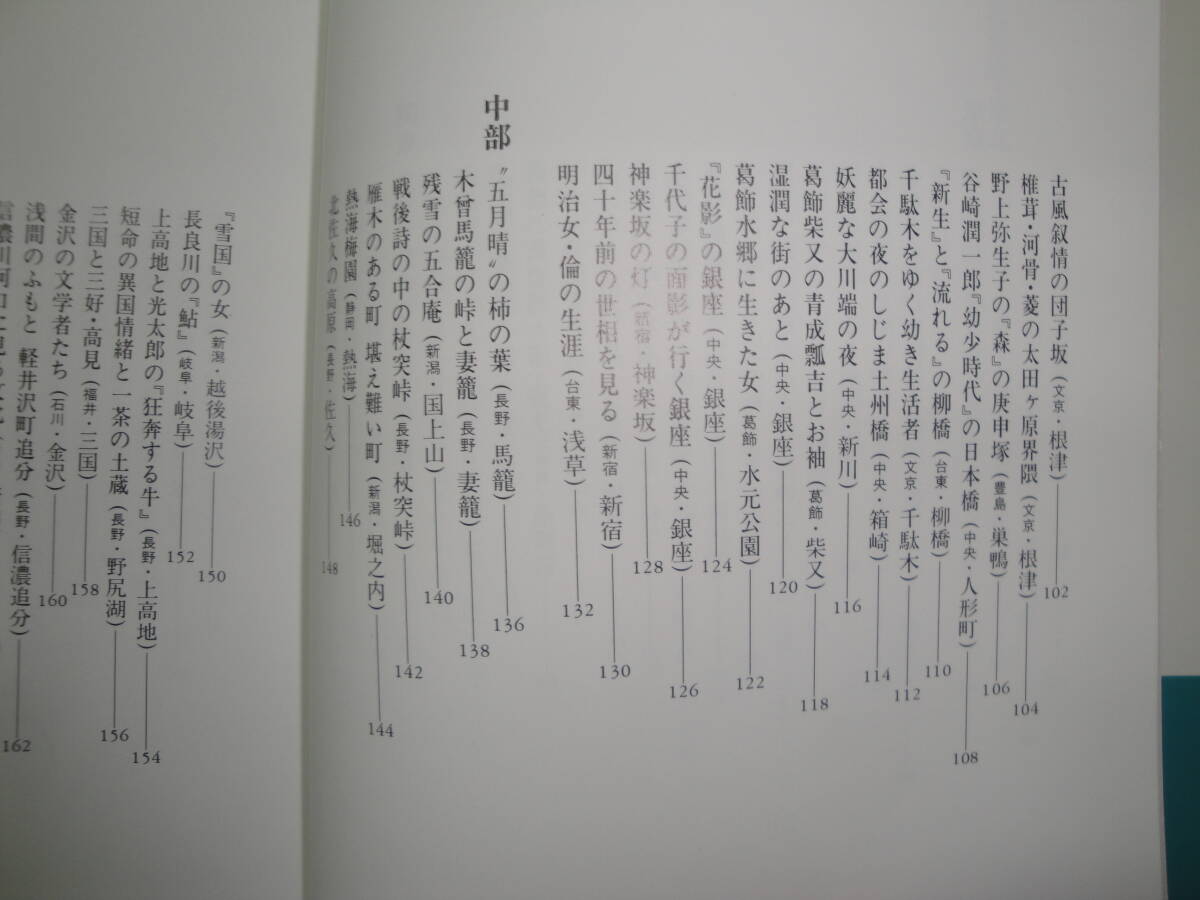 古風叙情の団子坂（文京・根津）――102
椎茸・河骨・菱の太田ヶ原界隈（文京・根津）――104
野上弥生子の『森』の庚申塚（豊島・巣鴨）――106
谷崎潤一郎『幼少時代』の日本橋（中央・人形町）――108
『新生』と『流れる』の柳橋（台東・柳橋）――110
千駄木をゆく幼き生活者（文京・千駄木）――112
都会の夜のしじま土州橋（中央・箱崎）――114
妖麗な大川端の夜（中央・新川）――116
葛飾柴又の青成瓢吉とお袖（葛飾・柴又）――118
湿潤な街のあと（中央・銀座）――120
葛飾水郷に生きた女（葛飾・水元公園）――122
『花影』の銀座（中央・銀座）――124
千代子の面影が行く銀座（中央・銀座）――126
神楽坂の灯（新宿・神楽坂）――128
四十年前の世相を見る（新宿・新宿）――130
明治女・倫の生涯（台東・浅草）――132
中部
〝五月晴〟の柿の葉（長野・馬籠）――136
木曾馬籠の峠と妻籠（長野・妻籠）――138
残雪の五合庵（新潟・国上山）――140
戦後詩の中の杖突峠（長野・杖突峠）――142
雁木のある町 堪え難い町（新潟・堀之内）――144
熱海梅園（静岡・熱海）――146
北佐久の高原（長野・佐久）――148
『雪国』の女（新潟・越後湯沢）――150
長良川の『鮎』（岐阜・岐阜）――152
上高地と光太郎の『狂奔する牛』（長野・上高地）――154
短命の異国情緒と一茶の土蔵（長野・野尻湖）――156
三国と三好・高見（福井・三国）――158
金沢の文学者たち（石川・金沢）――160
浅間のふもと 軽井沢町追分（長野・信濃追分）――162
信濃川河口に